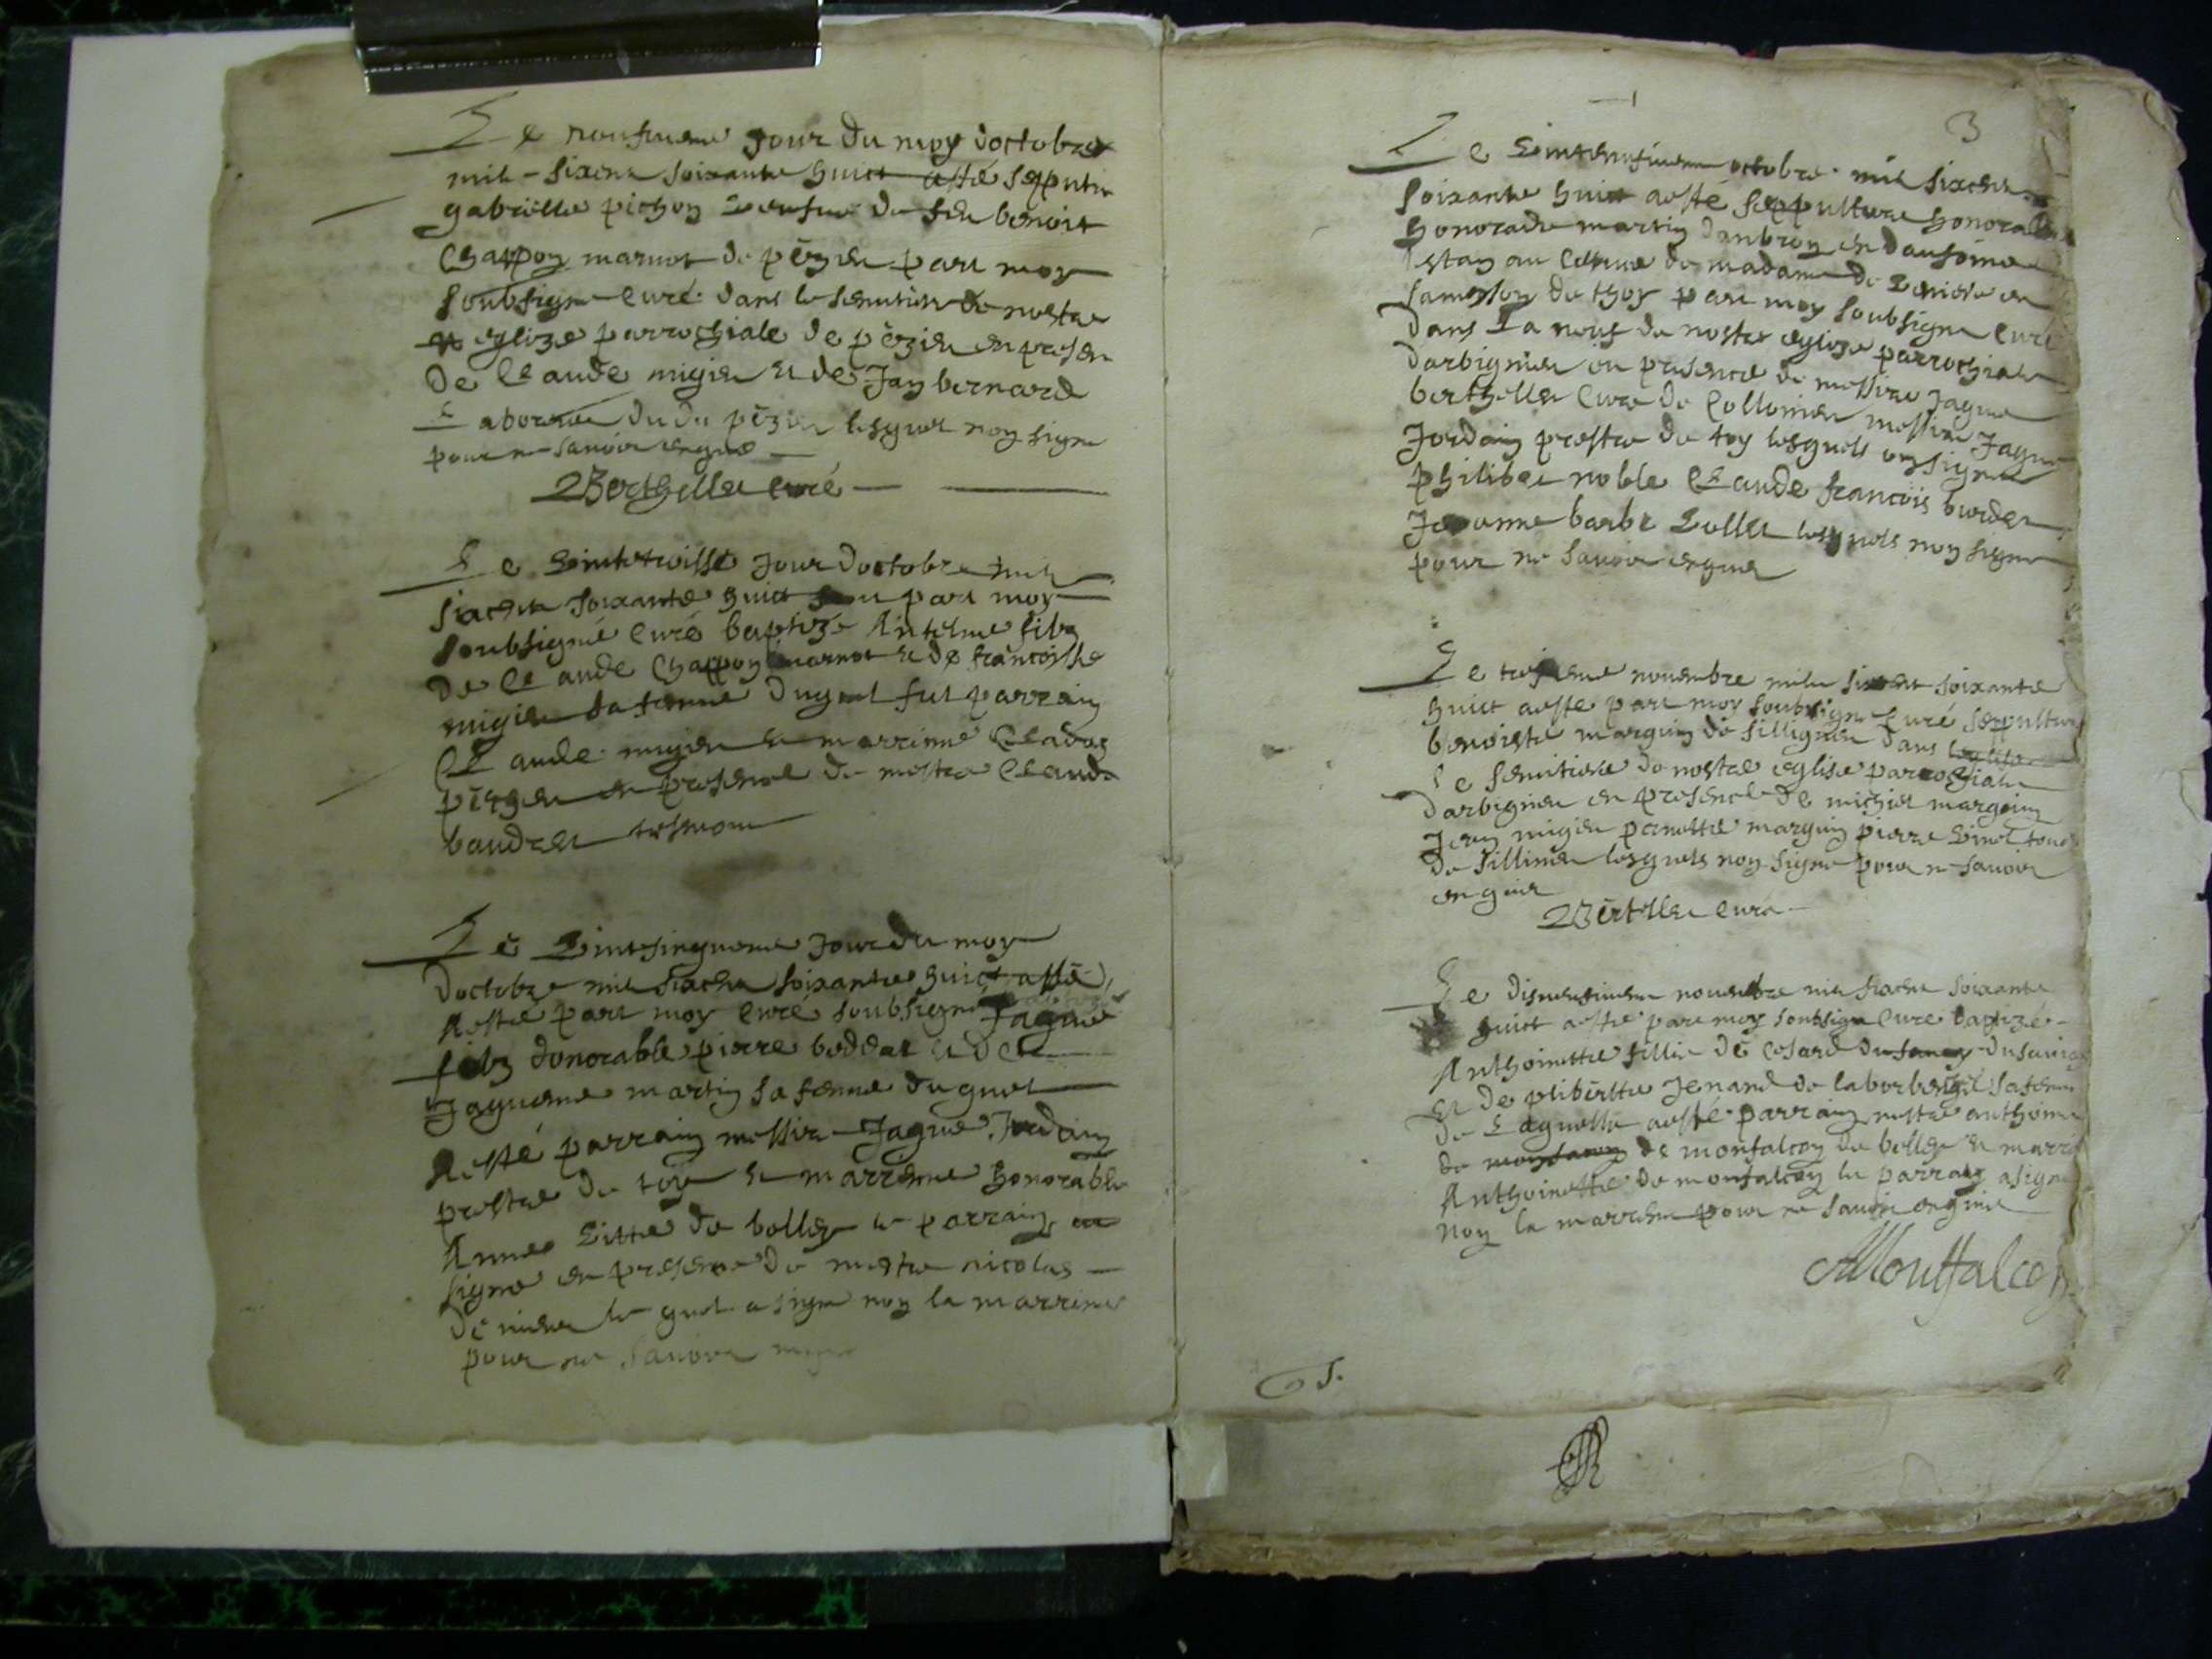 Le noufvieme Jour du moy doctobre
mil sixcent soixante huict a esté sepputu
gabrielle pichon veufve de feu benoist
Chappon marnot de pézieu part moy
soubsigne Curé dans le semitiere de nostre
eglize parrochiale de pézieu en presen
de Claude migieu et de Jan bernard
laborrou du du pézieu lesquel non signe
pour ne savoir enquis
Berthellet curé
Le vintetroisse Jour doctobre mil
sixcent soixante huict part moy
soubsigné Curé baptizé Antelme filz
de Claude Chappon marnot et de francoisse
migieu sa femme duquel fut parrain
Claude migieu et marrinne Claudaz
en presence de mestre Claude
baudret tesmoin
Le vintsinquieme Jour du moy
doctobre mil sixcent soixante huict a esté
A esté part moy curé soubsigné baptizé Jaque
filz donorable pierre boddet et de
Jaqueme martin sa femme duquel
A esté parrain messire Jaque Jordain
prestre de toy et marrenne honorable
Anne vitte de belley le parrain
signe en presence de mestre nicolas
le quel a signe non la marrinne
pour ne savoir
3
Le vinteneufvieme octobre mil sixcent
soixante huict a esté sepputture honorable
honorade martin danbron en daufiné
estan au service de madame de en
sa meyson de thoy part moy soubsigne Curé
dans la neuf de nostre eglize parrochiale
darbignieu en presence de messire Jaque
berthellet Cure de Collomieu messire Jaque
Jordain prestre de toy lesquels on signe
philibee noble Claude francois burdet
Jeanne barbe vollet lesquels non signe
pour ne savoir enquis
Le troisieme novembre mil sixcent soixante
huict a esté part moy soubsigne Curé seppulture
benoiste marguin de sillignieu dans leglise
le semitiere de nostre eglise parrochiale
darbignieu en presence de michiel marguin
Jean migieu pernette marguin pierre vinet tous
de sillinieu lesquels non signe pour ne savoir
enquis
Berthellet Curé
Le disneufvieme novembre mil sixcent soixante
huict a esté part moy soubsigne Cure baptizé
Anthoinette fillie de Cesard
et de plibertte Jenand de laborbengé sa femme
de laquelle a esté parrain mestre anthoine
de de monfalcon de belley et marre
Anthoinette de monfalcon le parrain a signe
non la marrenne pour ne savoir enquis
AMontfalcon